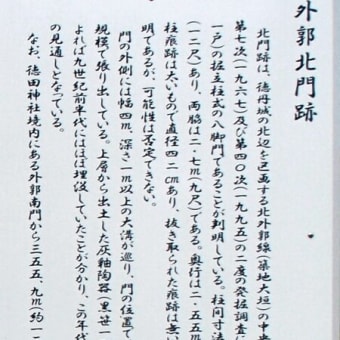 外郭北門跡
北門跡は、徳丹城の北辺を区画する北外郭線(築地大垣)の中央
第七次(一九六七)及び第四〇次(一九九五)の二度の発掘調査に
一戸)の掘立柱式の八脚門であることが判明している。柱間寸法
(一二尺)あり、両脇は二・七m(九尺)である。奥行は二・五五m
柱痕跡は太いもので直径四二cmあり、抜き取られた痕跡は無い
明であるが、可能性は否定できない。
門の外側には幅四m、深さ一m以上の大溝が巡り、門の位置で
規模で張り出している。上層から出土した灰釉陶器(黒笹一
よれば九世紀前半代にはほぼ埋没していたことが分かり、この年代
の見通しとなっている。
なお、徳田神社境内にある外郭南門から三五五、九m(約一二